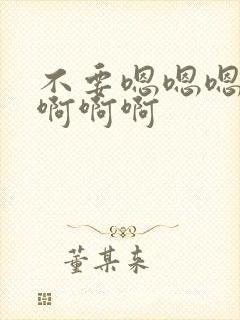 不要嗯嗯嗯
啊啊啊
董某来